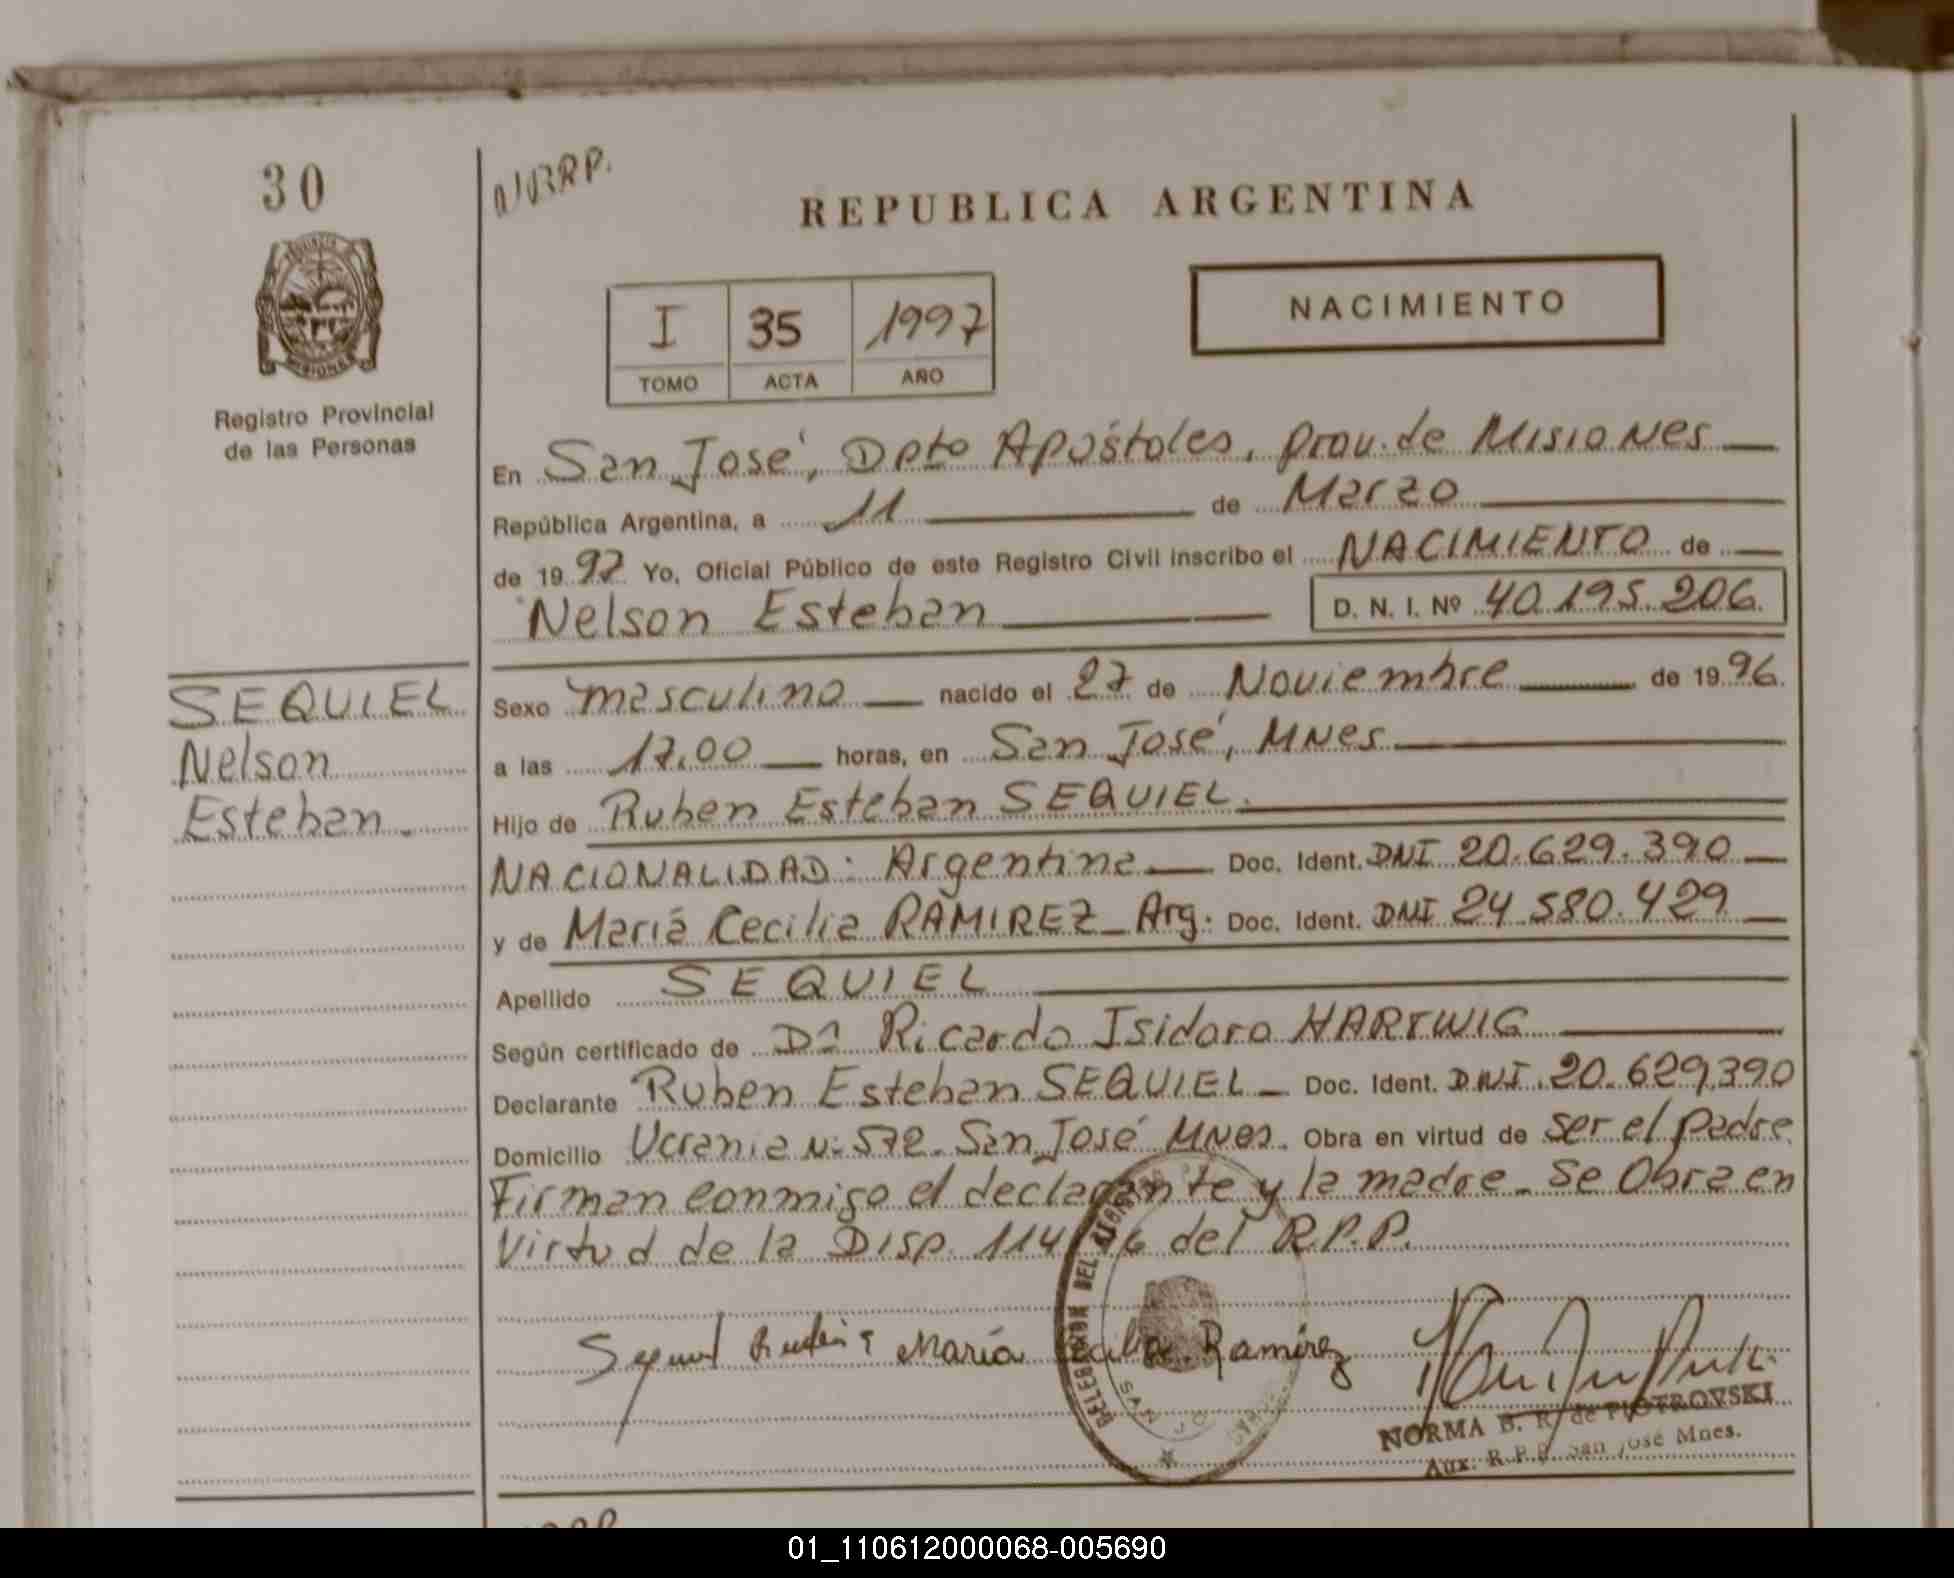 30
NRRP.
REPUBLICA ARGENTINA
I 35 1997
TOMO ACTA AÑO
NACIMIENTO
Registro Provincial
de las Personas
En San José, Dpto Apóstoles, prov. de Misiones
República Argentina, a 11 de Marzo
de 1997 Yo, Oficial Público de este Registro Civil inscribo el NACIMIENTO de
Nelson Esteban D. N. I. Nº 40.195.206.
SEQUIEL
Nelson
Esteban.
Sexo masculino nacido el 27 de Noviembre de 1996.
a las 17.00 horas, en San José, Mnes
Hijo de Ruben Esteban SEQUIEL.
NACIONALIDAD: Argentina Doc. Ident. DNI 20.629.390
y de María Cecilia RAMIREZ Arg. Doc. Ident. DNI 24.580.429
Apellido SEQUIEL
Según certificado de Dr Ricardo Isidoro HARTWIG
Declarante Ruben Esteban SEQUIEL Doc. Ident. DNI. 20.629.390
Domicilio Ucrania N: 572. San José Mnes. Obra en virtud de ser el padre.
Firman conmigo el declarante y la madre. Se Obra en
Virtud de la Disp. 114 del R.P.P.
María Cecilia Ramírez
DELEGACION DEL REGISTRO
SAN JO
NORMA B. R. de PIOTROVSKI
Aux. R.P.P. San José Mnes.
01_110612000068-005690